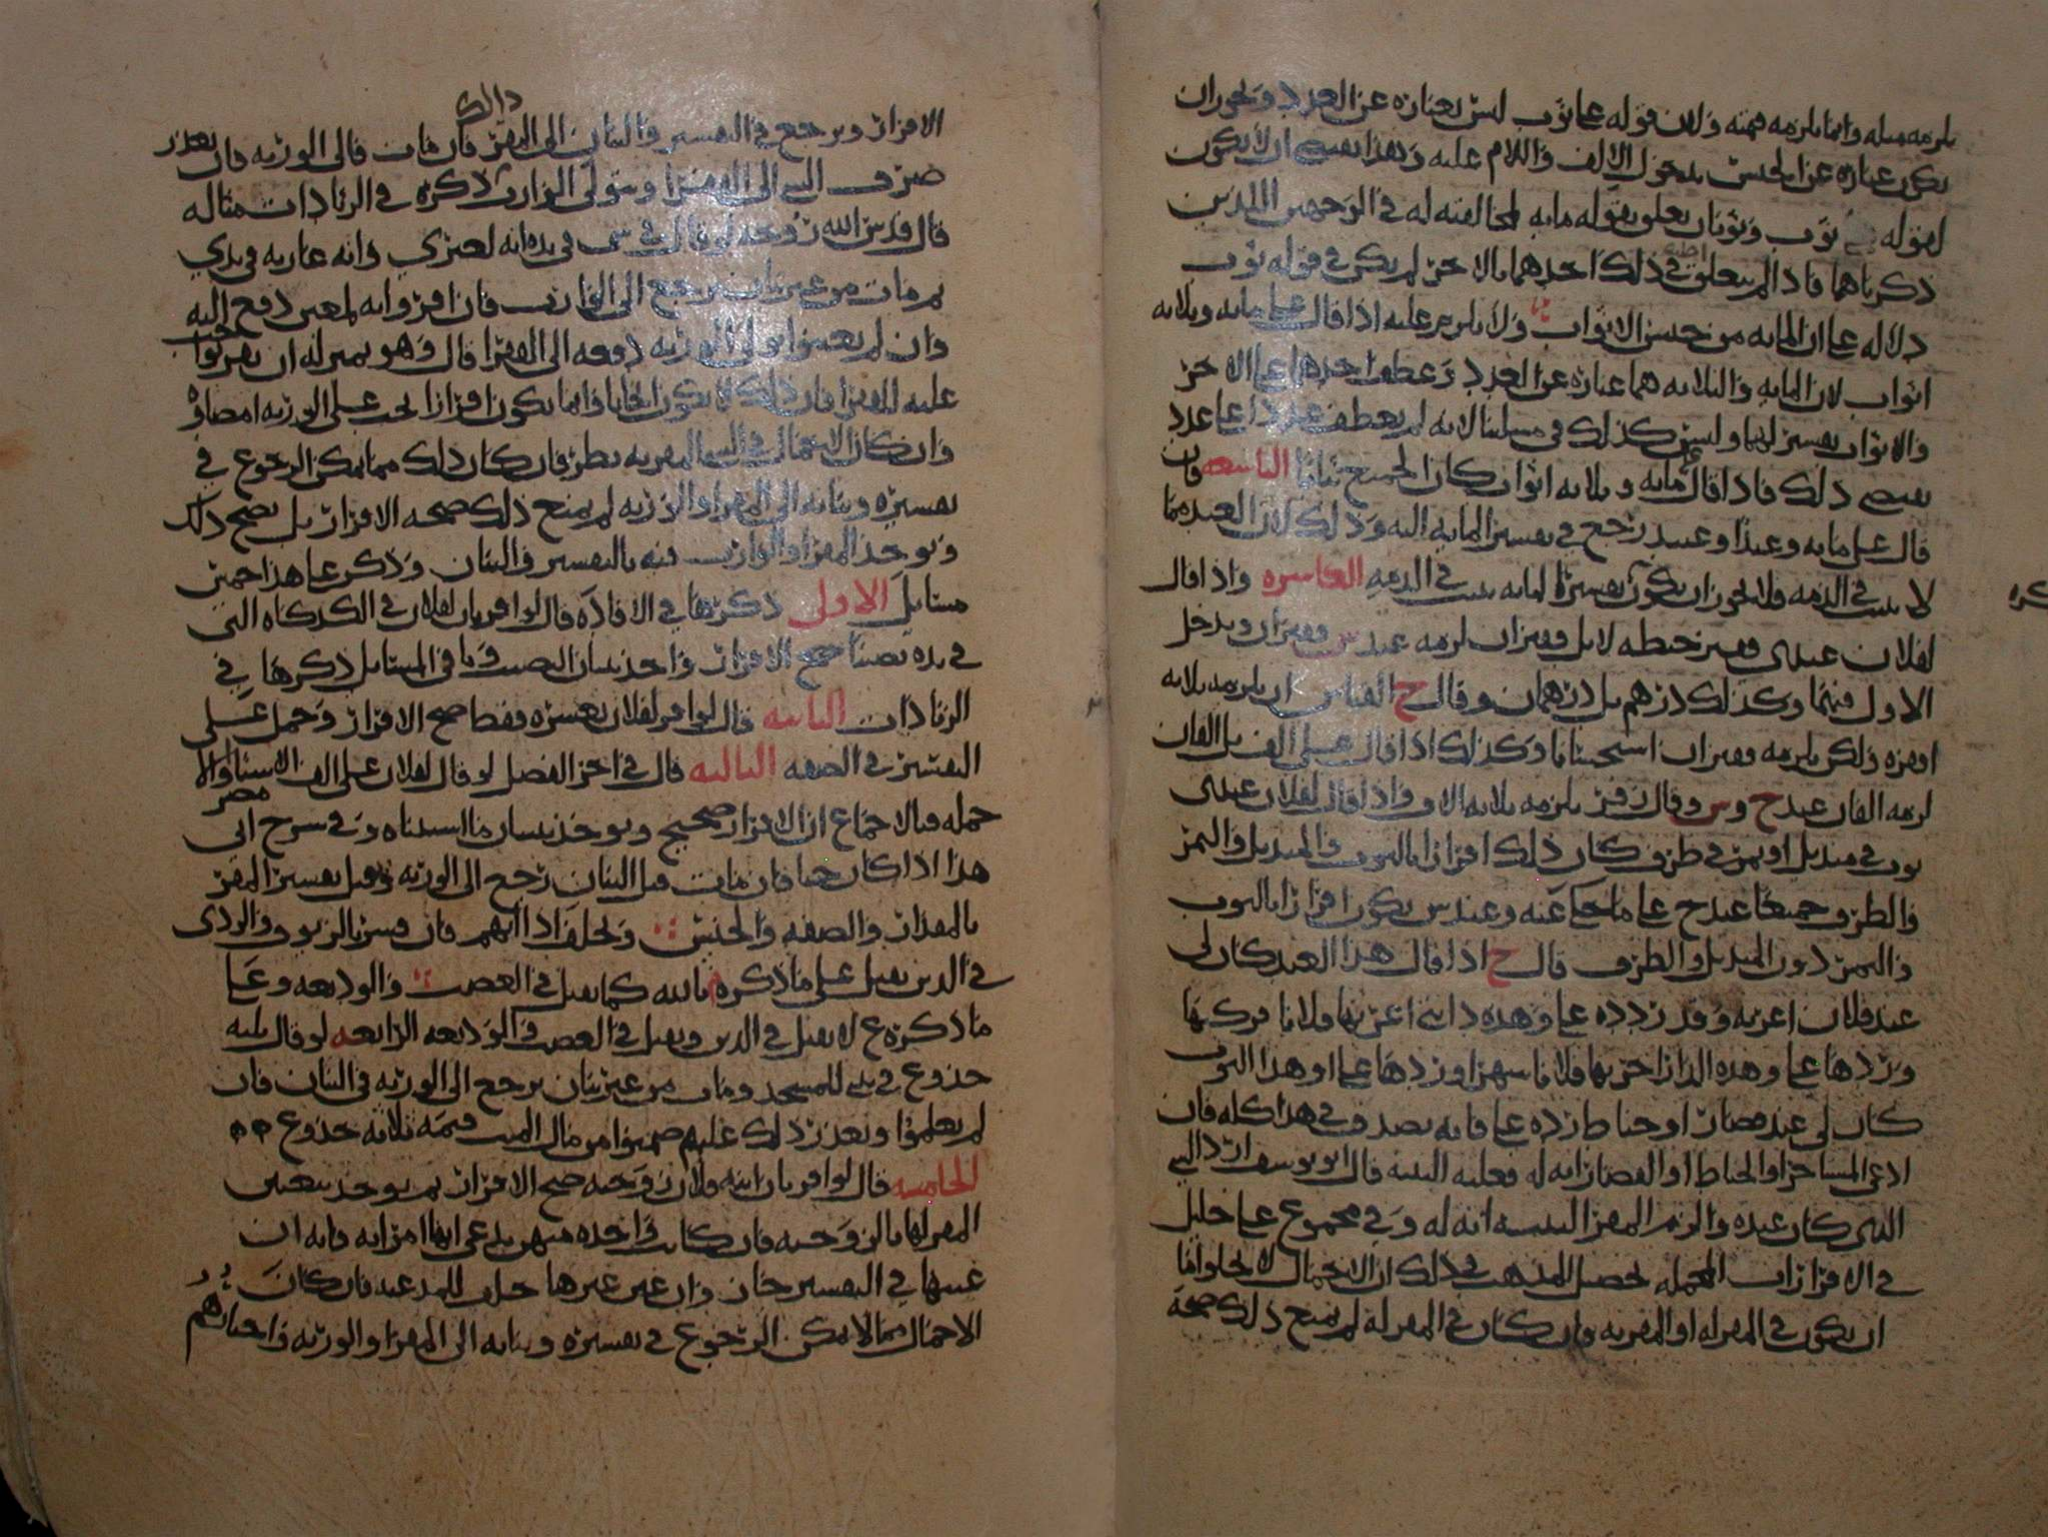 يلزمه مثله وانما يلزمه قيمته ولان قوله علي ثوب ليس بعباره عن العدد ويجوز ان
يكون عباره عن الجنس بدخول الالف واللام عليه وهذا يقتضي ان لا يكون
لقوله ثوب وثوبان تعلق بقوله مايه لمخالفته له في الوجهين اللذين
ذكرناهما فاذا لم يتعلق في ذلك احدهما بالاخر لم يكن في قوله ثوب
دلاله على ان المايه من جنس الاثواب ولا يلزم عليه اذا قال علي مايه وثلاثه
اثواب لان المايه والثلاثه هما عباره عن العدد وعطف احدهما على الاخر
والاثواب تفسير لهما وليس كذلك في مسلتنا لانه لم يعطف عددا على عدد
يقتضي ذلك فاذا قال مايه وثلاثه اثواب كان الجميع ثيابا التاسعه فان
قال علي مايه وعبد او عبيد رجع في تفسير المايه اليه وذلك لان العبد مما
لا يثبت في الذمه فلا يجوز ان يكون تفسيرا لمايه يثبت في الذمه العاشره واذا قال
لفلان عندي قفيز حنطه لا بل قفيزان لزمه عند س قفيزان ويدخل
الاول فيهما وكذلك درهم بل درهمان وقال ح القياس ان يلزمه ثلاثه
اقفزه ولكن يلزمه قفيزان استحسانا وكذلك اذا قال علي الف بل الفان
لزمه الفان عند ح وس وقال زفر يلزمه ثلاثه الاف واذا قال لفلان عندي
ثوب في منديل او تمر في ظرف كان ذلك اقرارا بالثوب والمنديل والتمر
والظرف جميعا عند ح على ما حكي عنه وعند س يكون اقرارا بالثوب
والتمر دون المنديل والظرف قال ح اذا قال هذا العبد كان لي
عند فلان اعرته وقد رده علي وهذه دابتي اعرتها فلانا فركبها
وردها علي وهذه الدار اجرتها فلانا شهرا وردها علي او هذا الثوب
كان لي عند قصار او خياط رده علي فانه يصدق في هذا كله فان
ادعى المستاجر او الخياط او القصار انه له فعليه البينه قال ابو يوسف ارد الى
الذي كان عنده والزم المقر البينه انه له وفي مجموع علي خليل
في الاقرارات المجمله تحصيل المذهب في ذلك ان الاجمال لا يخلو اما
ان يكون في المقر له او المقر به فان كان في المقر له لم يمنع ذلك صحه
الاقرار ويرجع في التفسير والبيان الى المقر فان مات فالى الورثه فان تعذر ذلك
صرف الشي الى الفقرا ويتولى الوارث ذكره في الزيادات مثاله
قال قدس الله روحه لو قال في شي في يده انه لغيري وانه عاريه في يدي
ثم مات من غير بيان يرجع الى الوارث فان اقروا به لمعين دفع اليه
وان لم يعينوا تولى الورثه دفعه الى الفقرا قال وهو بمنزله ان يقر بواجب
عليه للفقرا فان ذلك لا يكون ايجابا وانما يكون اقرارا يجب على الورثه امضاوه
وان كان الاجمال في الشي المقر به نظر فان كان ذلك مما يمكن الرجوع في
تفسيره وبيانه الى المقر او الورثه لم يمنع ذلك صحه الاقرار بل يصح ذلك
ويوخذ المقر او الوارث فيه بالتفسير والبيان وذكر على هذا خمس
مسايل الاولى ذكرها في الافاده قال لو اقر بان لفلان في الكدكاه التي
في يده نصيبا صح الاقرار واخذ ببيان النصيب وباقي المسايل ذكرها في
الزيادات الثانيه قال لو اقر لفلان بعشره فقط صح الاقرار وحمل على
التفسير في الصفه الثالثه قال في اخر الفصل لو قال لفلان علي الف الا شيا والا
جمله فبالاجماع ان الاقرار صحيح ويوخذ ببيان ما استثناه وفي شرح ابي مضر
هذا اذا كان حيا فان مات قبل البيان رجع الى الورثه وقبل تفسير المقر
بالمقدار والصفه والجنس ويحلف اذا اتهم فان فسر بالزيوف والردي
في الدين يقبل على ما ذكره م بالله كما يقبل في الغصب والوديعه وعلى
ما ذكره ع لا يقبل في الدين ويقبل في الغصب والوديعه الرابعه لو قال ثلثه
جذوع في بيتي للمسجد ومات من غير بيان يرجع الى الورثه في البيان فان
لم يعلموا وتعذر ذلك عليهم ضمنوا من مال الميت قيمه ثلاثه جذوع
الخامسه قال لو اقر بان ابنه فلان زوجته صح الاقرار ثم يوخذ بتعيين
المقر لها بالزوجيه فان كانت واحده منهن تدعي انها امراته فانه ان
عينها في التفسير جاز وان عين غيرها حلف للمدعيه فان كان
الاجمال مما لا يمكن الرجوع في تفسيره وبيانه الى المقر او الورثه واختيارهم